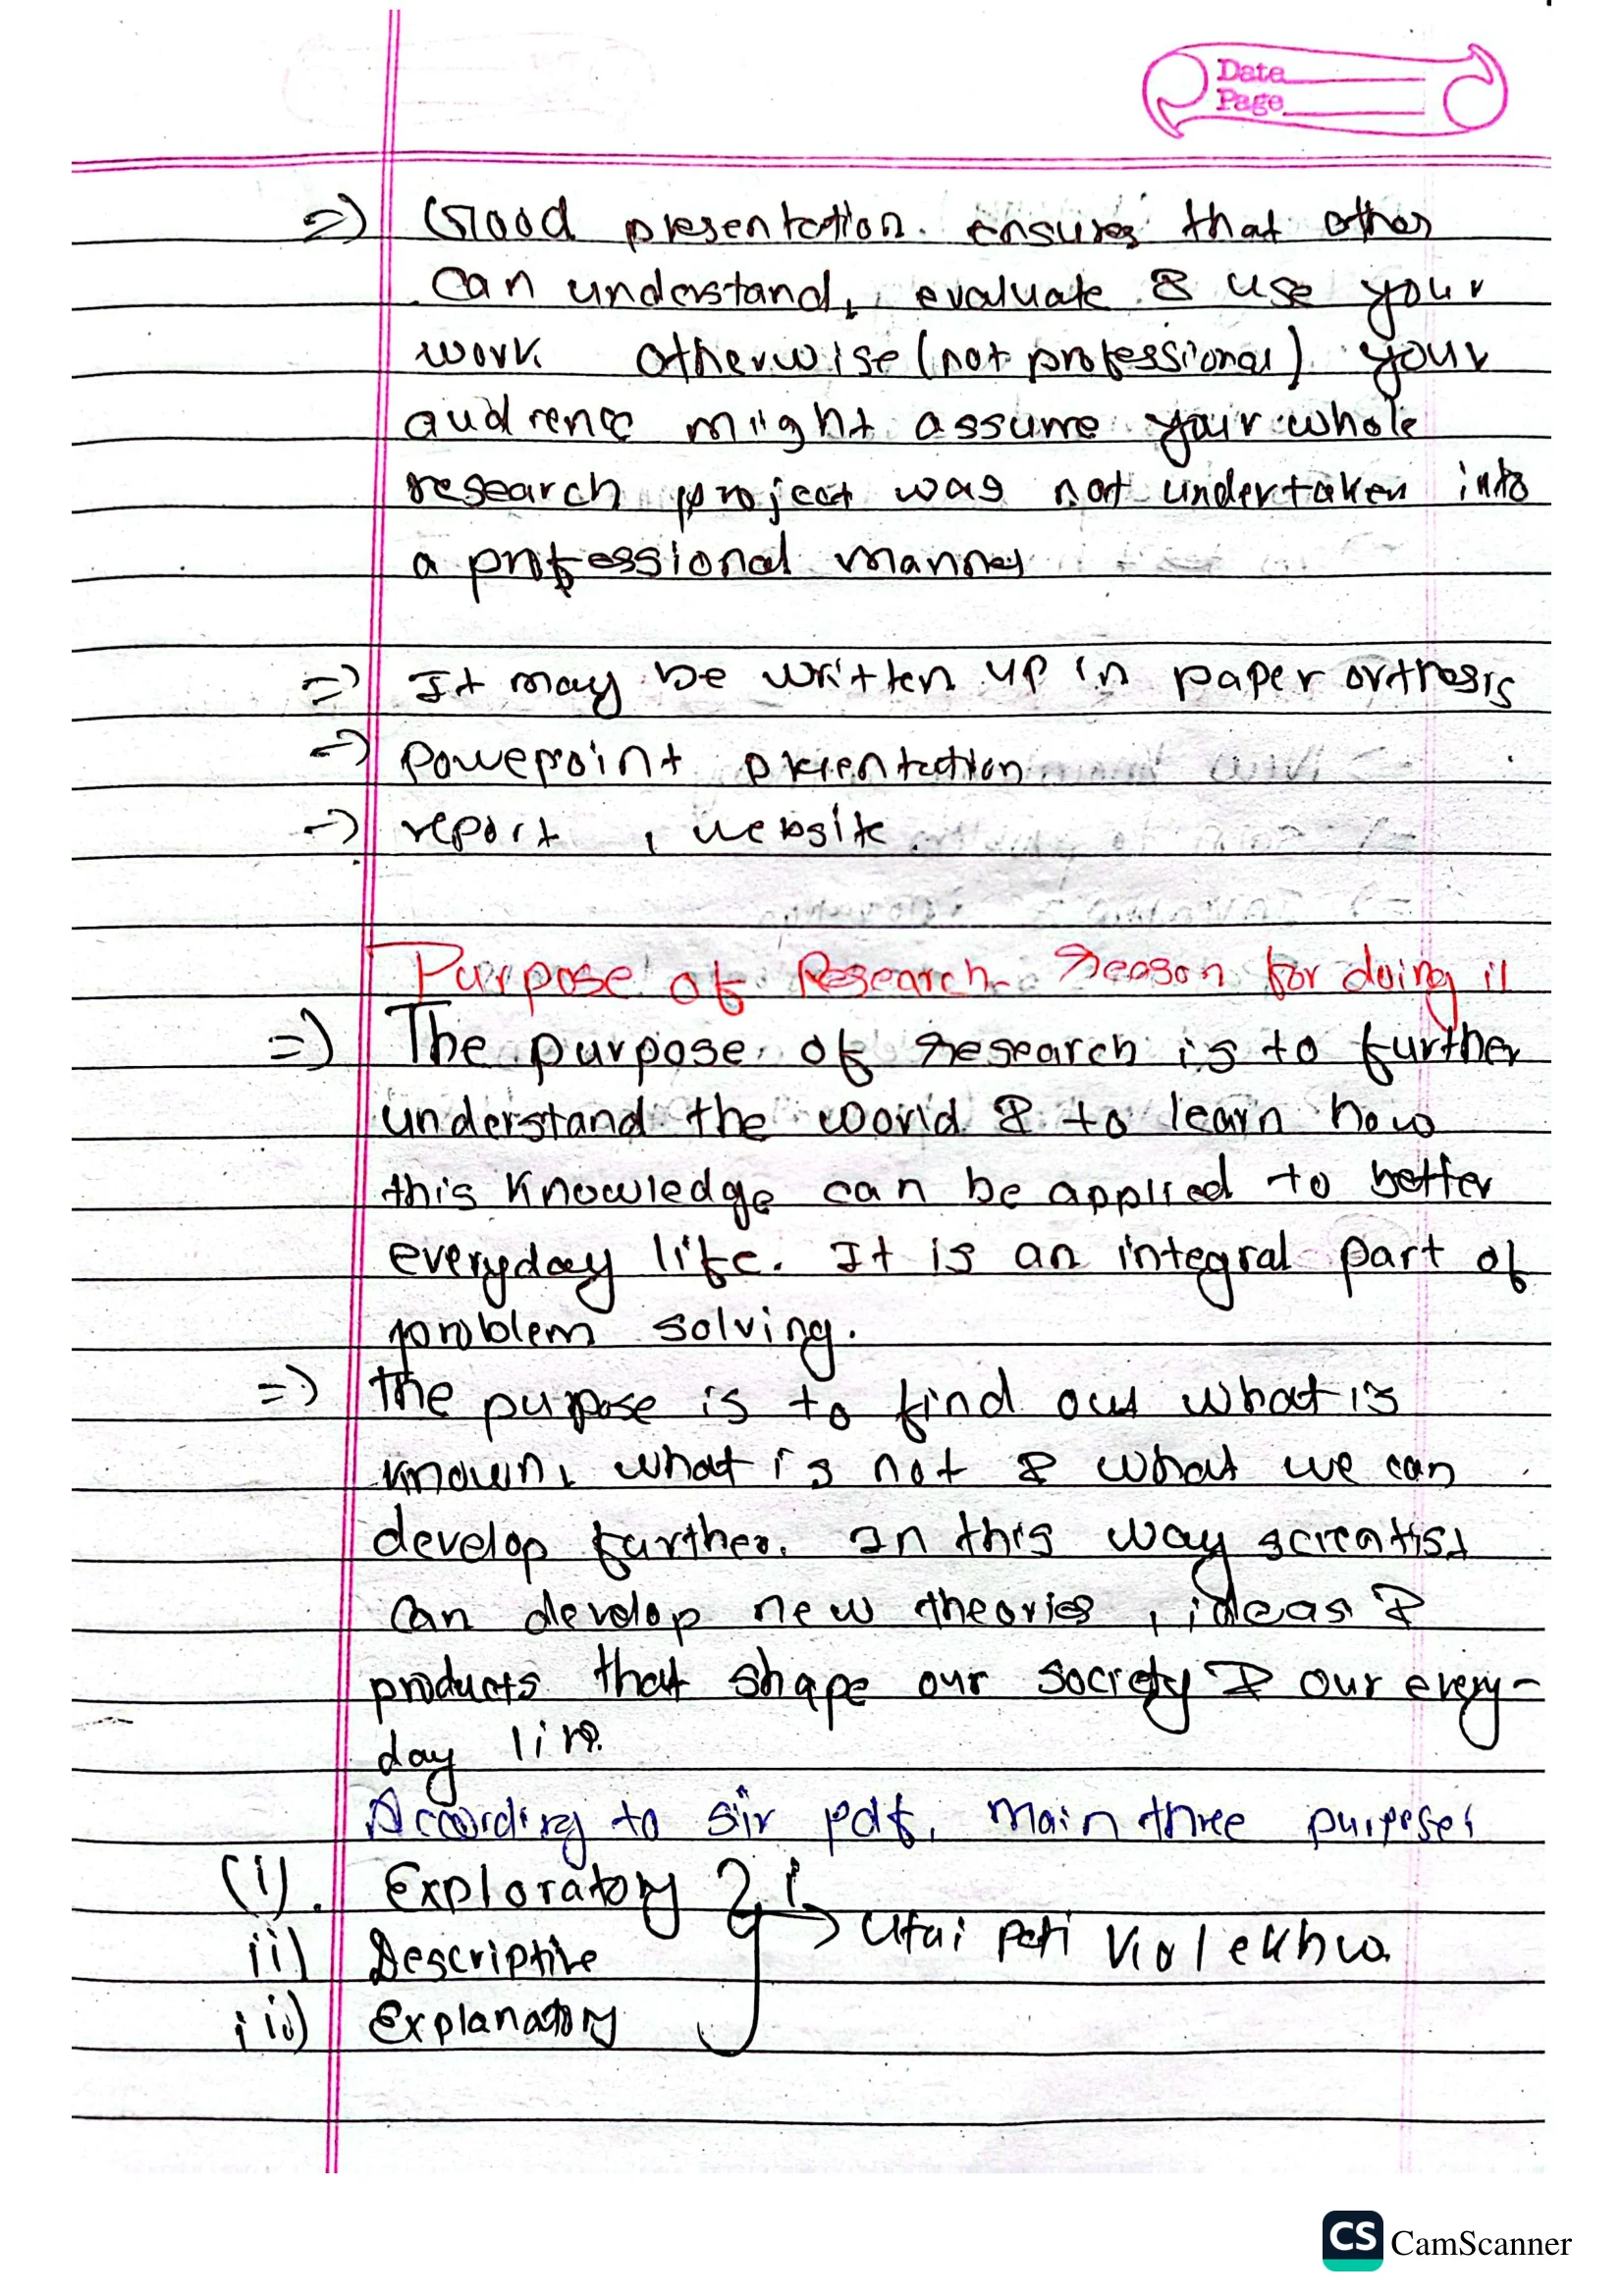 Date
Page
=) Good presentation ensures that other
can understand, evaluate & use your
work otherwise (not professional) your
audience might assume your whole
research project was not undertaken into
a professional manner
=) It may be written up in paper or thesis
=) Powepoint presentation
=) report, website.
Purpose of Research - Reason for doing it
=) The purpose of research is to further
understand the world & to learn how
this knowledge can be applied to better
everyday life. It is an integral part of
problem solving.
=) The purpose is to find out what is
known, what is not & what we can
develop further. In this way scientist
can develop new theories, ideas &
products that shape our society & our every-
day life.
According to sir pdf, main three purposes
(i). Exploratory
ii) Descriptive
→ Utai pati
iii) Explanatory
CS CamScanner